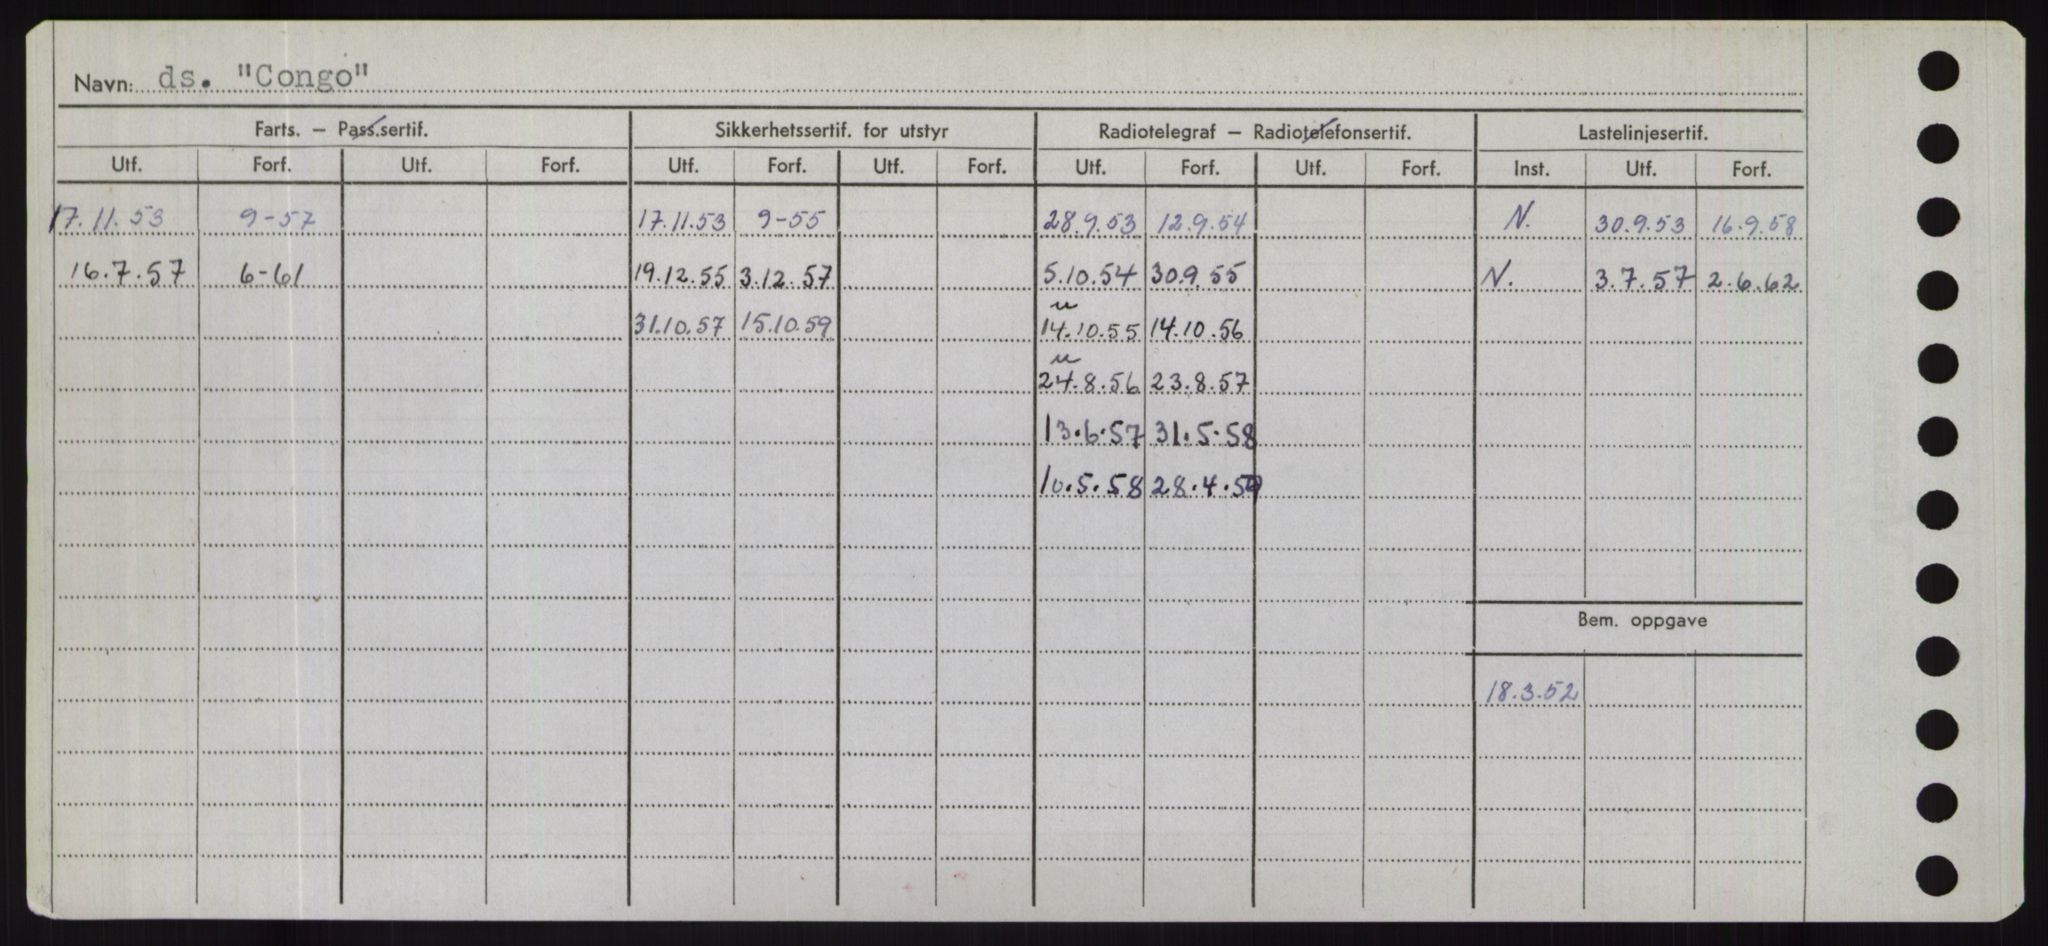 Navn: ds. "Congo"
Farts. – Pass.sertif. Sikkerhetssertif. for utstyr Radiotelegraf – Radiotelefonsertif. Lastelinjesertif.
Utf. Forf. Utf. Forf. Utf. Forf. Utf. Forf. Utf. Forf. Utf. Forf. Inst. Utf. Forf.
17.11.53 9-57 17.11.53 9-55 28.9.53 12.9.54 N. 30.9.53 16.9.58
16.7.57 6-61 19.12.55 3.12.57 5.10.54 30.9.55 N. 3.7.57 2.6.62
u
31.10.57 15.10.59 14.10.55 14.10.56
u
24.8.56 23.8.57
13.6.57 31.5.58
10.5.58 28.4.59
Bem. oppgave
18.3.52